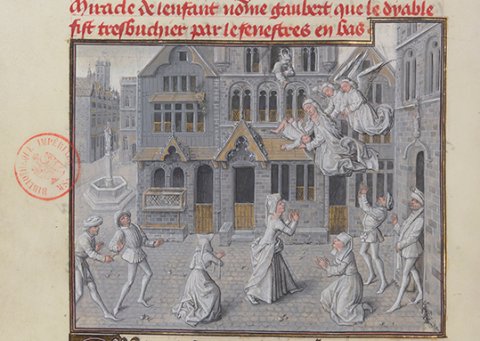 Miracle de lenfant nōme gaubert que le dyable
fist tresbuchier par le fenestres en bas